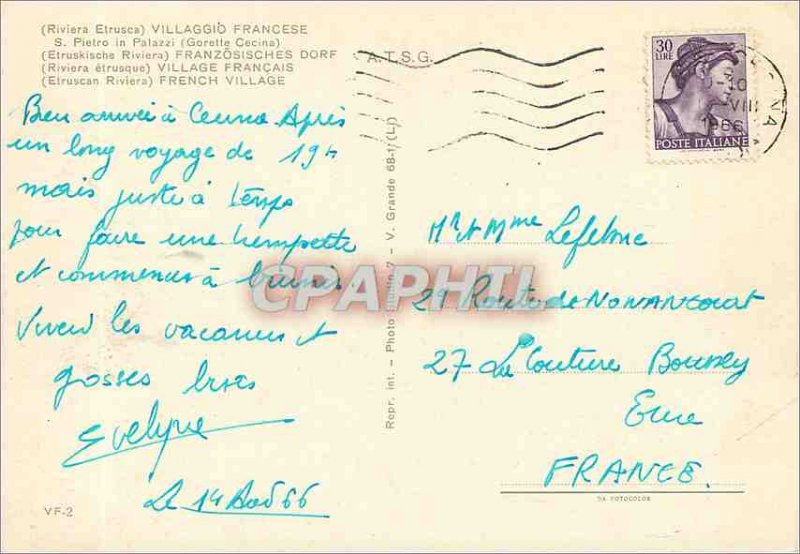 (Riviera Etrusca) VILLAGGIO FRANCESE
S. Pietro in Palazzi (Gorette Cecina)
(Etruskische Riviera) FRANZÖSISCHES DORF
(Riviera étrusque) VILLAGE FRANÇAIS
(Etruscan Riviera) FRENCH VILLAGE
A.T.S.G.
30
LIRE
POSTE ITALIANE
VIII
1966
Bien arrivée à Cecina Après
un long voyage de 19h
mais juste à temps
pour faire une trempette
et commencer à brunir
Vivent les vacances et
grosses bises
Evelyne
Le 14 Août 66
VF-2
Repr. int. - Photo 7 - V. Grande 68-1 (LI)
Mr et Mme Lefebvre
29 Route de NONANCOURT
27 La Couture Boussey
Eure
FRANCE.
DA FOTOCOLOR
CPAPHIL